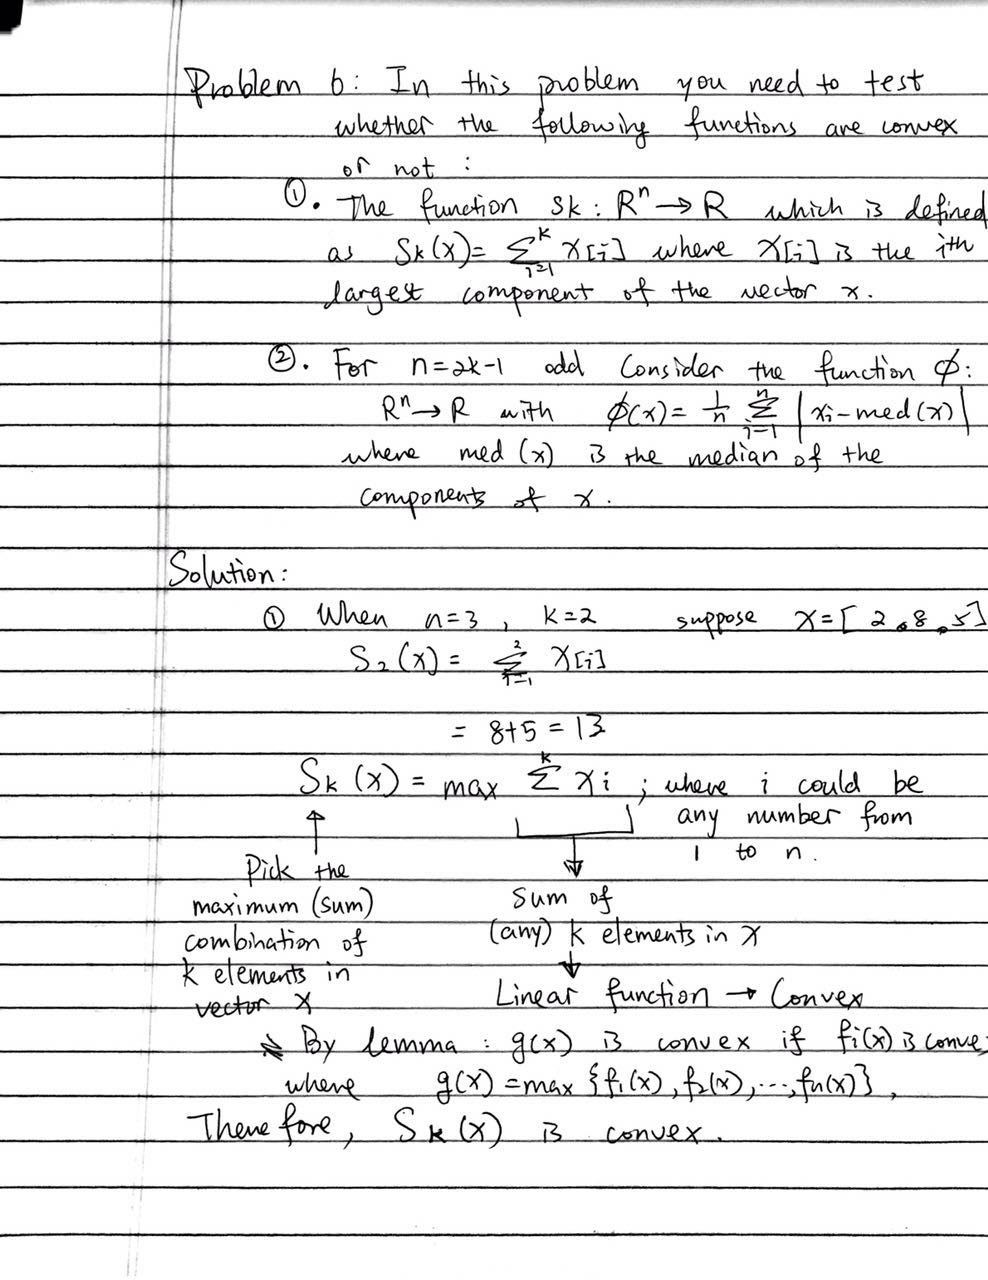 Problem 6: In this problem you need to test
whether the following functions are convex
or not :
①. The function Sk : Rⁿ → R which is defined
as Sk(x) = Σᵢ₌₁ᵏ x[i] where x[i] is the ith
largest component of the vector x.
②. For n=2k-1 odd Consider the function ϕ:
Rⁿ → R with ϕ(x) = 1/n Σᵢ₌₁ⁿ |xi - med(x)|
where med (x) is the median of the
components of x.
Solution:
① When n=3 , k=2 suppose x=[ 2,8,5]
S₂(x) = Σᵢ₌₁² x[i]
= 8+5 = 13
Sk (x) = max Σᵏ xi ; where i could be
any number from
1 to n.
Pick the
maximum (sum)
combination of
k elements in
vector x
Sum of
(any) k elements in x
Linear function → Convex
By lemma : g(x) is convex if fi(x) is conve
where g(x) = max {f₁(x), f₂(x), ..., fn(x)},
Therefore, Sk (x) is convex.